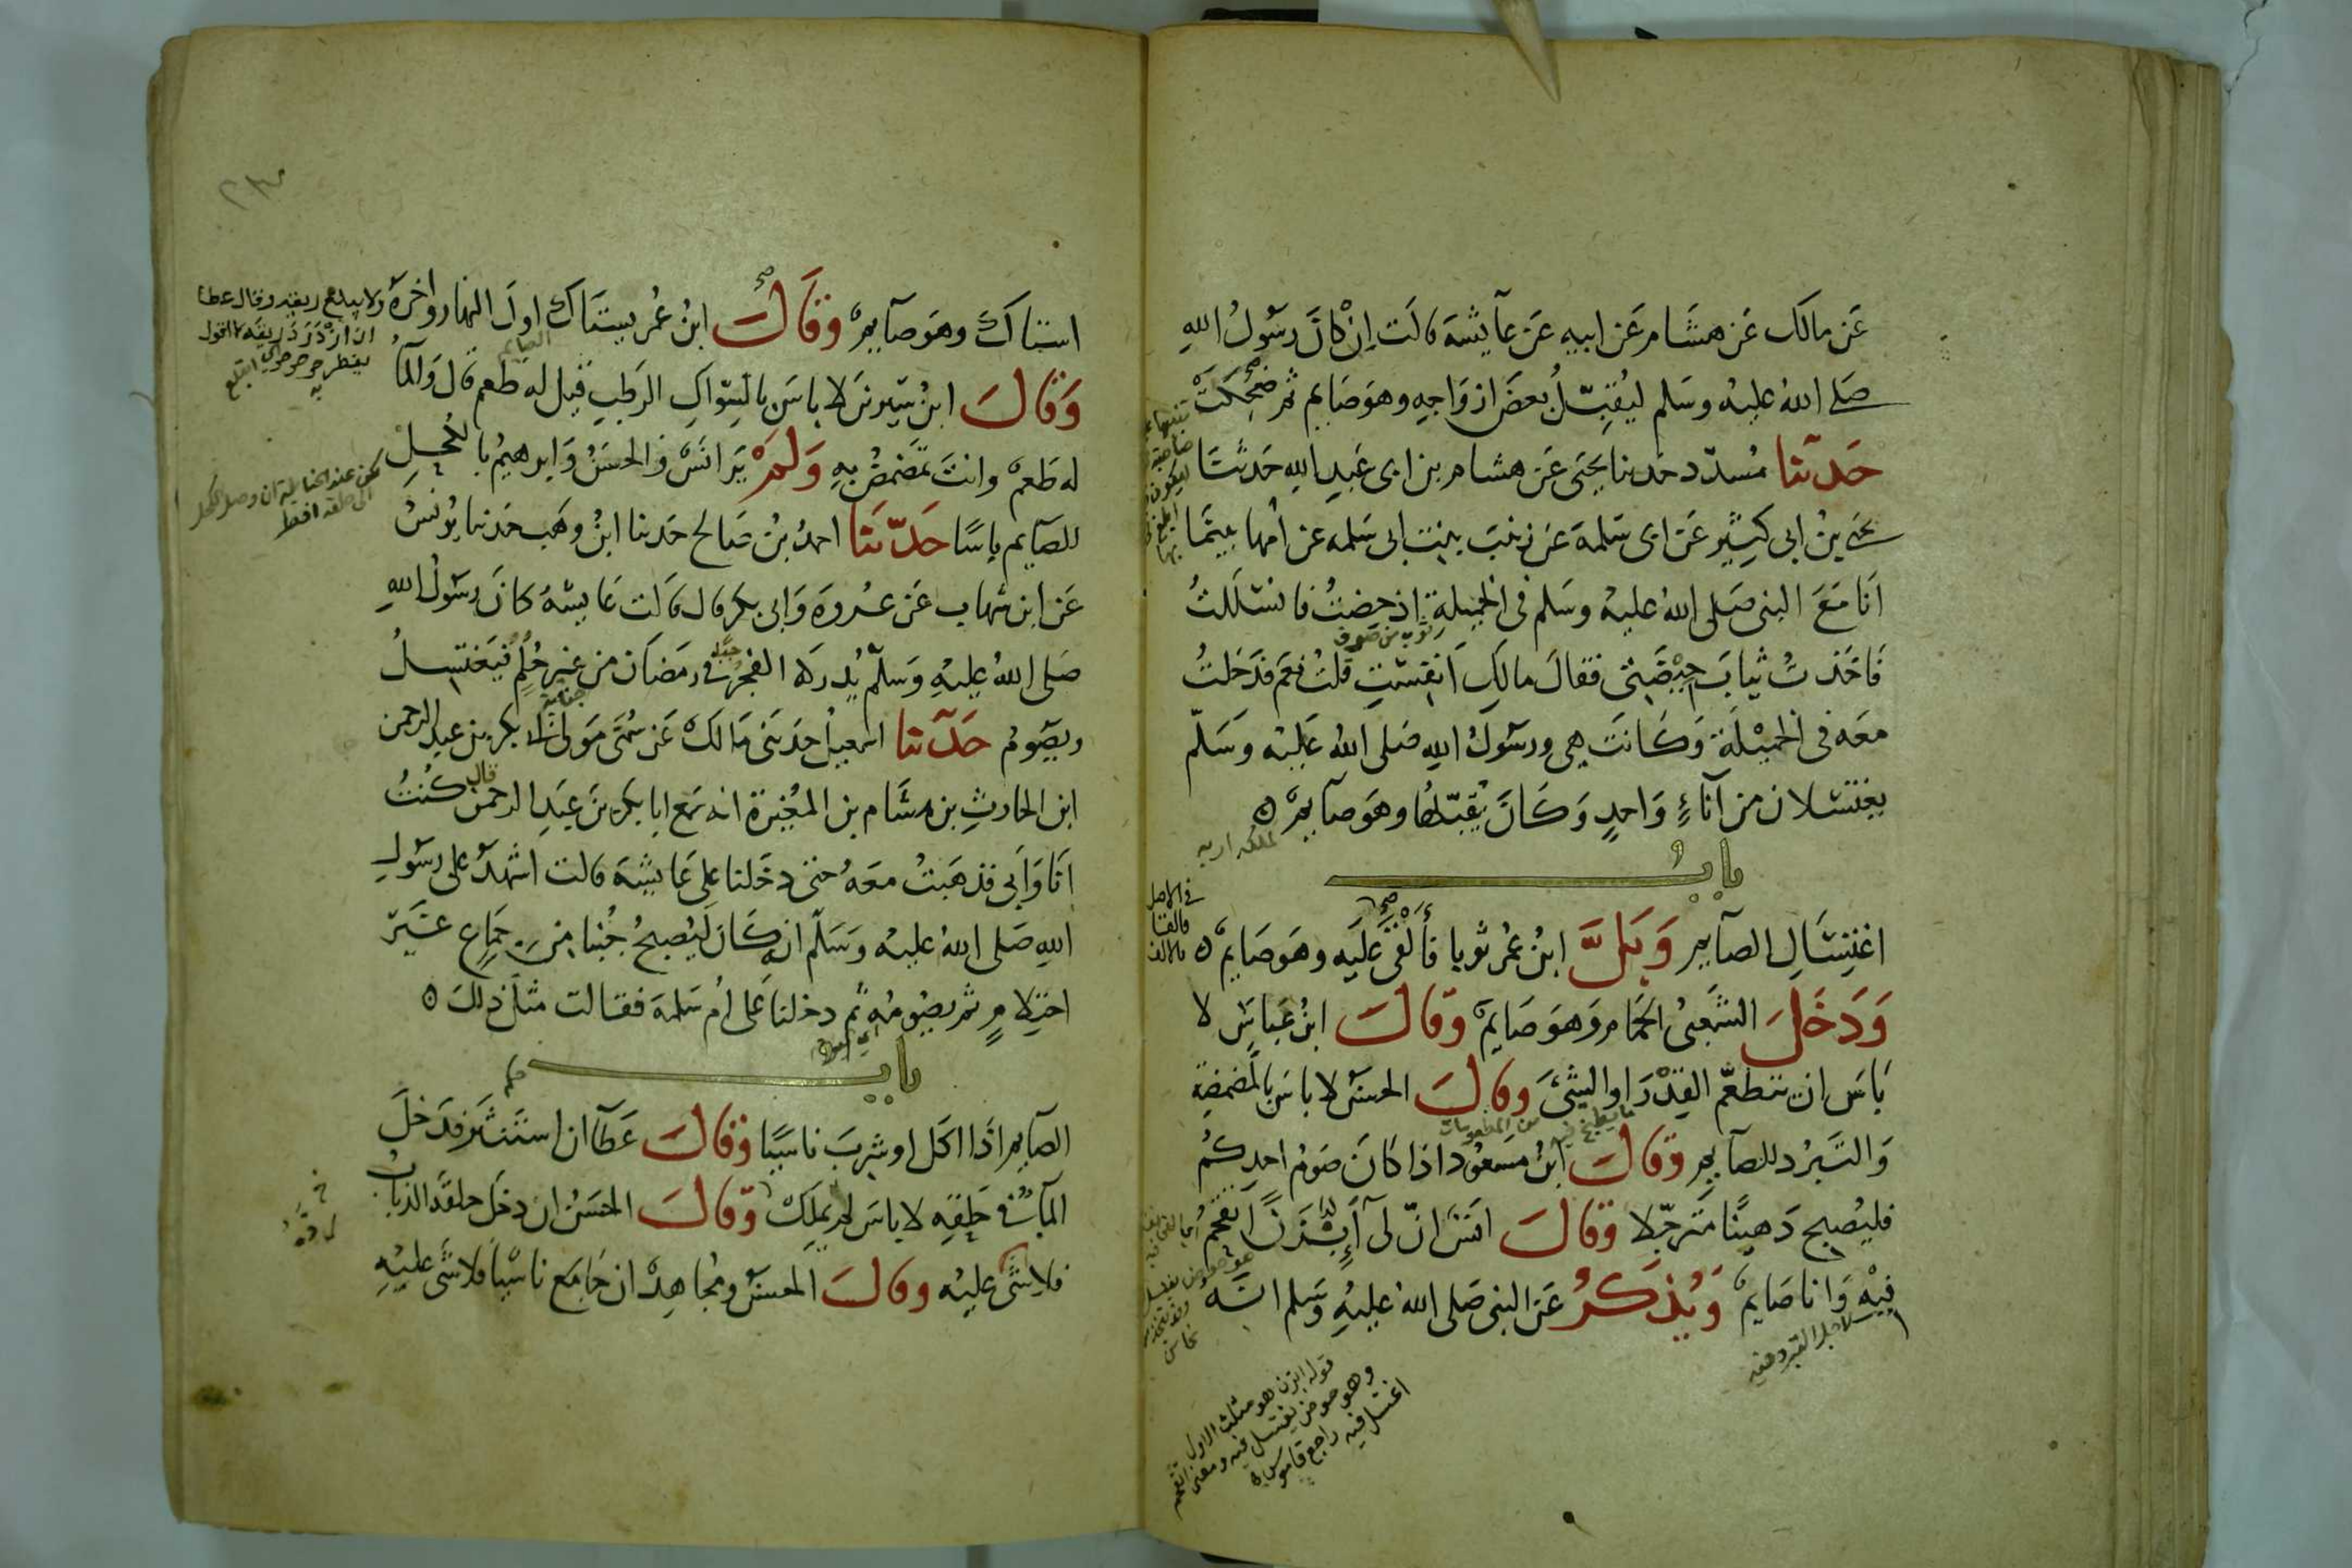 عَن مالك عَن هشَام عَن ابيه عَن عآيشة قالَت اِنْ كانَ رسَولُ الله
صَلى اللهُ عليهْ وسَلم ليُقبّلُ بعضَ ازوَاجِهِ وهوَ صَايم ثم ضَحِكَتْ
حَدثنا مُسدّد حَدثنا يَحْيَى عَن هشام بن ابى عَبدِ الله حَدثَنا
يَحيى بنُ ابى كثِير عَن ابى سَلمة عَن زينبَ بنت ابى سَلمة عَن امّها بينَما
اَنَا مَعَ النبى صَلى اللهُ عليهْ وسَلم فى الخَميلةِ اذ حِضتُ فانسَلَلتُ
ثوب من صوف
فَاخَذتُ ثيابَ حِيْضَتى فقالَ مالَكِ اَنفِستِ قلتُ نعَم فدَخلتُ
معَه فى الخمِيْلَة وَكَانَت هِى ورسَولُ اللهِ صَلى اللهُ عَليهْ وَسَلّم
يغتسَلان من آناءٍ وَاحدٍ وَكَانَ يُقبّلُها وهوَ صآيمٌ ۞
لملكه اربه
بابُ
اغتِسَالِ الصآيم وَبَلَّ ابنُ عُمرَ ثوبا فأَلْقَى عَلَيه وهوَ صَايمٌ ۞
فى الاصل فالقا بالالف
وَدَخَلَ الشَعبىُ الحمَام وَهوَ صَايمٌ وَقالَ ابنُ عَباسٍ لا
بَاسَ ان يتطعّم القِدْرَ او الشَئَ وقالَ الحسَنُ لا باسَ بالمضمضة
ما يطبخ فيه من المطعومات
وَالتَبرُد للصآيمِ وَقالَ ابنُ مَسعُود اذا كانَ صَومُ احدِكمُ
فليُصبح دَهينًا مترجّلا وَقالَ انسٌ انّ لى آَبْزَنًا اتَقحَّمُ
فِيْهِ وَانا صَايمٌ وَيُذكَرُ عَن النبى صَلى اللهُ عليهِ وَسَلم انّه
لاجل التبرد فيه
قوله ابزن هو مثلث الاول
وهو حوض يغتسل فيه ومعنى اتقحم
اغتسل فيه راجع قاموس
استاكَ وهوَ صآيمٌ وَقَالَ ابنُ عُمرَ يستَاكُ اولَ النهار واخرَهُ ولا يبلع ريقه وقال عطا
الصايم
ان ازْدَرَدَ ريقَه لا اقول يفطر
وَقالَ ابنُ سِيرينَ لا باسَ بالسِّواكِ الرَطبِ قيل له طعم قال وَالمآُ
لهُ طَعمٌ وانتَ تَمضمَضُ بهِ وَلَمْ يَرَ انسٌ وَالحسَنُ وَابرهيمُ بالكحلِ
لكن عند الحنابلة ان وصل الكحل الى حلقه افطر
للصآيم باسًا حَدّثَنا احمدُ بنُ صَالح حَدثنا ابنُ وهَب حَدثنا يُونسُ
عَن ابن شهاب عَن عُروةَ وَابى بكر قال قالت عَايشةُ كانَ رسَولُ اللهِ
صَلى اللهُ عليهِ وَسَلّم يُدركه الفجرُ فى رمَضَان من غير حُلُمٍ فيَغتسِلُ
ويصَومُ حَدثنا اسمعيلُ حَدثنى مَالكٌ عَن سُمَىّ مَولى ابى بكر بن عبد الرحمن
ابن الحارثِ بن هشَام بن المغيرة انه سمعَ ابا بكر بنَ عَبدِ الرحمن قال كُنتُ
اَنا وَابى فذهَبتُ معَهُ حتى دخَلنا على عَايشةَ قالت اشهدُ على رسَولِ
اللهِ صَلى اللهُ عليهْ وَسَلّم ان كَانَ ليُصبحُ جُنبا من جمَاعٍ غَيرِ
احتِلامٍ ثم يصَومُه ثم دخلنا عَلى اُم سَلمة فقالت مثلَ ذلكَ ۞
بابُ حكم
الصآيم اذَا اكَل او شرِبَ ناسيًا وَقالَ عَطآ ان استَنثَر فدَخلَ
المآءُ فى حَلقِهِ لا باسَ ان لم يَملِك وَقالَ الحسَنُ ان دخَل حلقَه الذبابُ
فلا شَىَ عليْه وقالَ الحسَنُ ومجُاهِدٌ ان جَامَعَ ناسْيًا فلا شَىَ عليْهِ